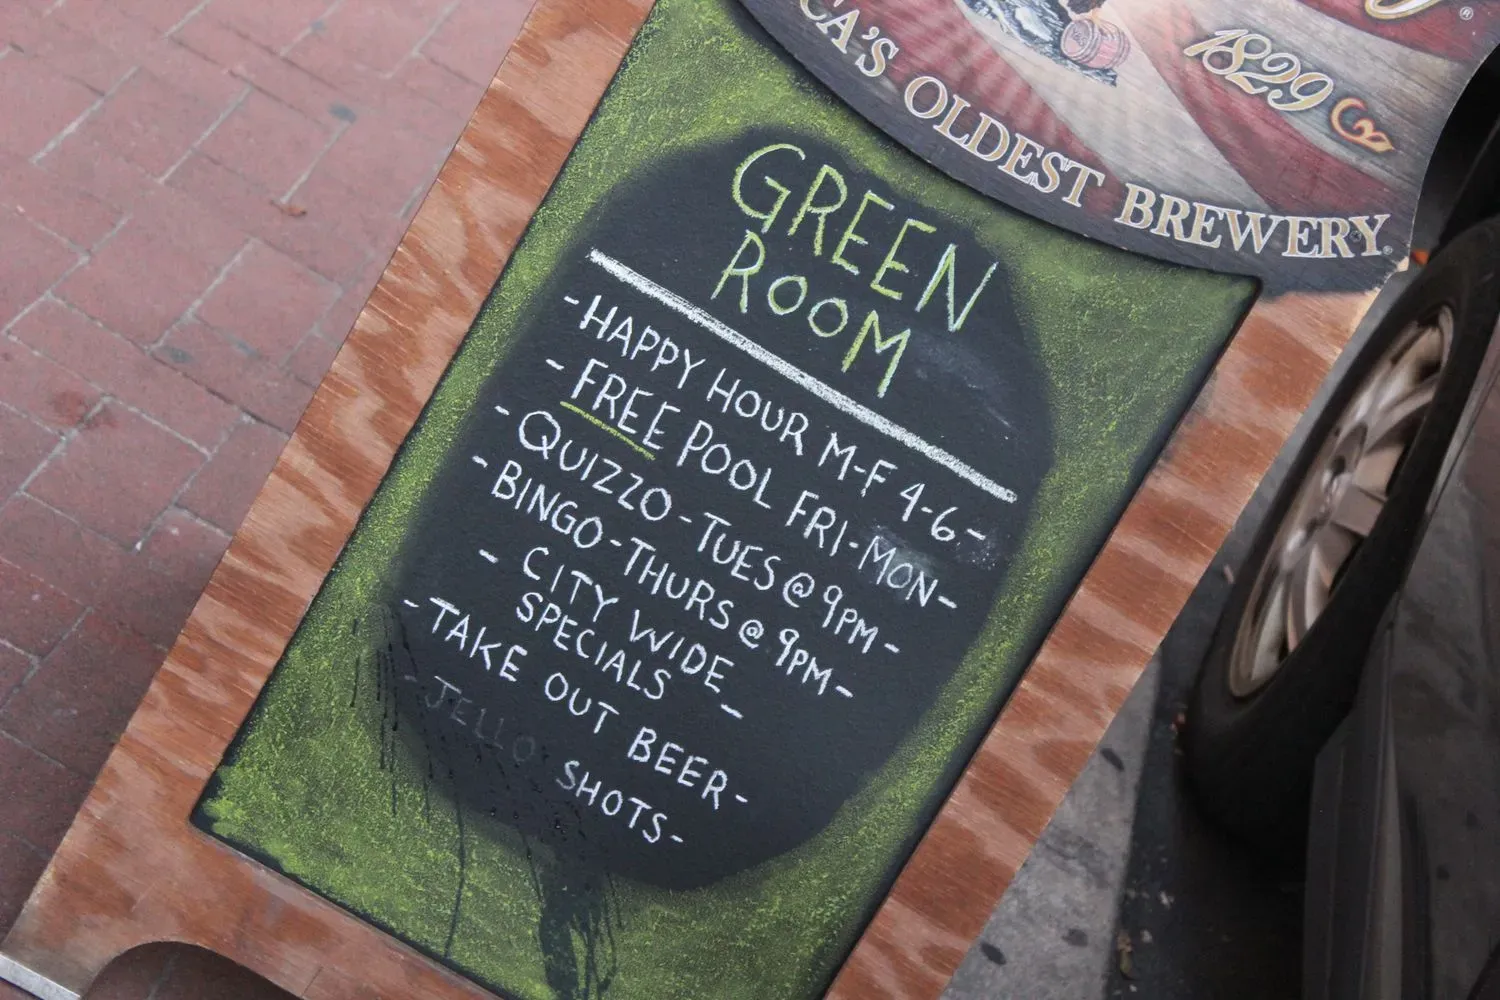 1829
CA'S OLDEST BREWERY
GREEN
ROOM
-HAPPY HOUR M-F 4-6-
- FREE POOL FRI-MON-
- QUIZZO - TUES @ 9PM-
- BINGO - THURS @ 9PM-
- CITY WIDE
SPECIALS -
- TAKE OUT BEER-
- JELLO SHOTS-